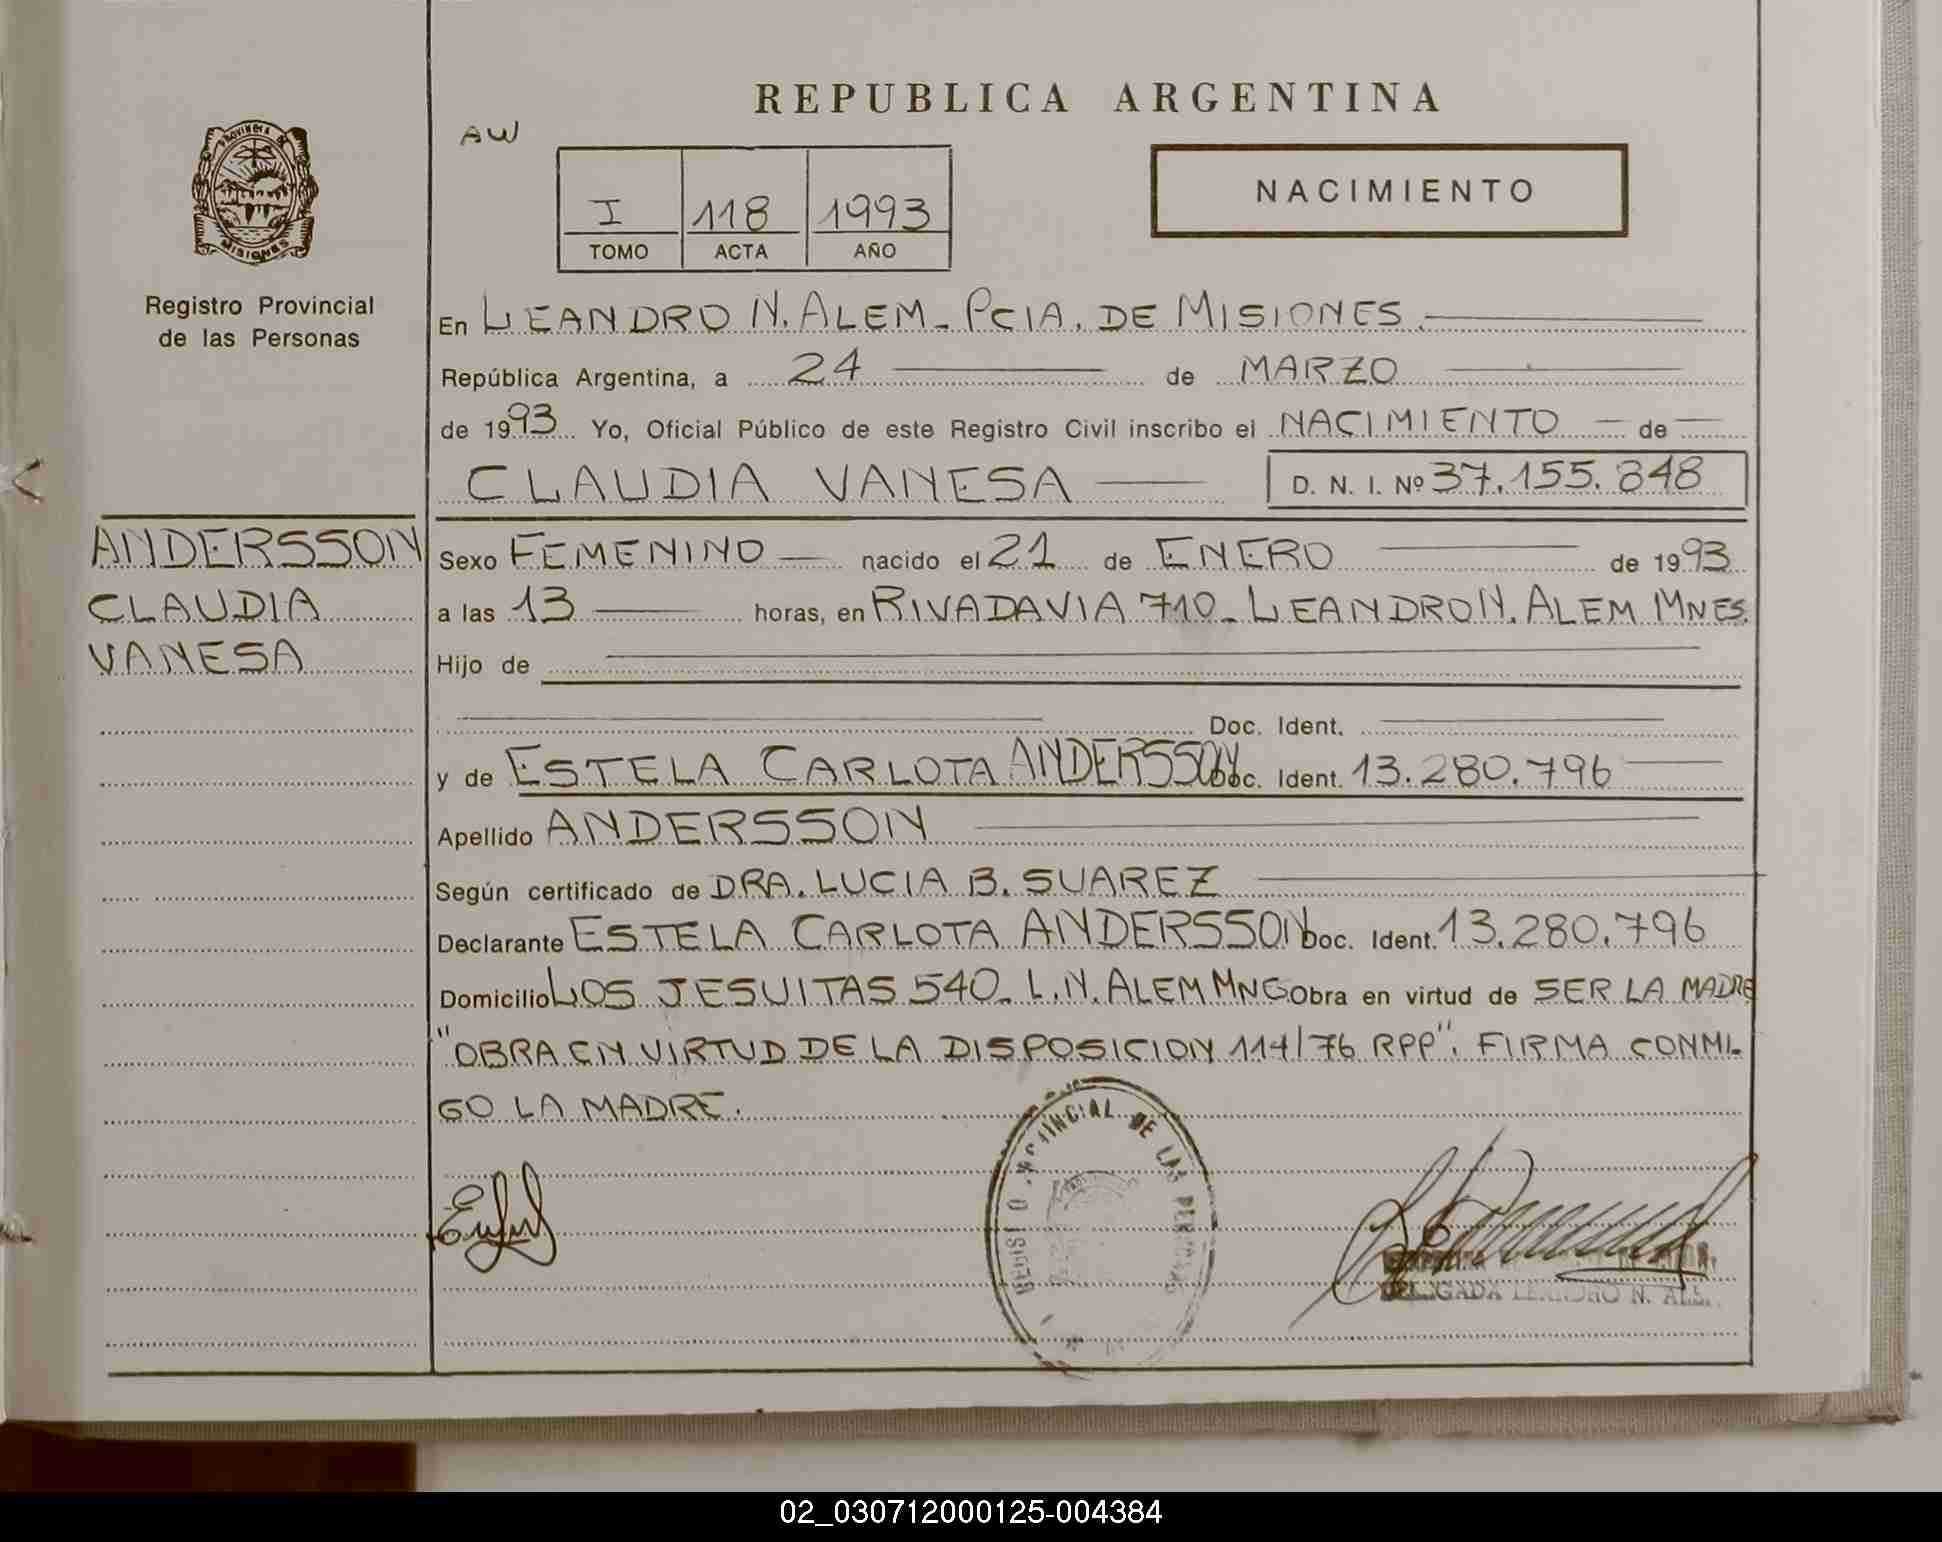 REPUBLICA ARGENTINA
AW
NACIMIENTO
I 118 1993
TOMO ACTA AÑO
PROVINCIA DE
MISIONES
Registro Provincial
de las Personas
En LEANDRO N. ALEM - PCIA. DE MISIONES.
República Argentina, a 24 de MARZO
de 1993 Yo, Oficial Público de este Registro Civil inscribo el NACIMIENTO de
CLAUDIA VANESA D. N. I. Nº 37.155.848
ANDERSSON
CLAUDIA
VANESA
Sexo FEMENINO nacido el 21 de ENERO de 1993
a las 13 horas, en RIVADAVIA 710 - LEANDRO N. ALEM MNES.
Hijo de
Doc. Ident.
y de ESTELA CARLOTA ANDERSSON Doc. Ident. 13.280.796
Apellido ANDERSSON
Según certificado de DRA. LUCIA B. SUAREZ
Declarante ESTELA CARLOTA ANDERSSON Doc. Ident. 13.280.796
Domicilio LOS JESUITAS 540 - L.N. ALEM Obra en virtud de SER LA MADRE
"OBRA EN VIRTUD DE LA DISPOSICION 114/76 RPP". FIRMA CONMI-
GO LA MADRE.
DE LAS
DELEGADA LEANDRO N. ALEM
02_030712000125-004384